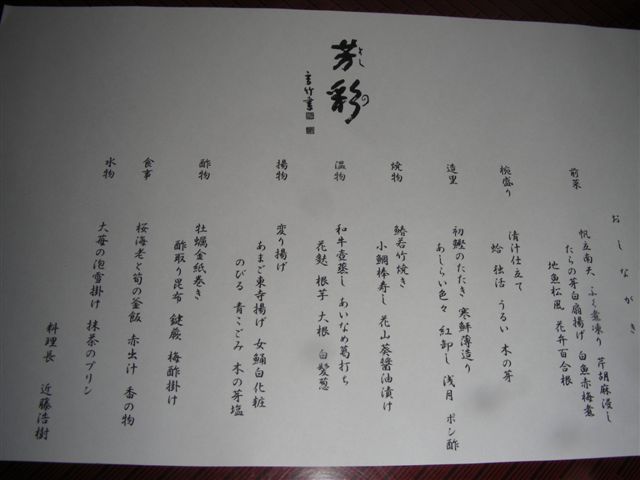 芳彩
よしの
おしながき
前菜
帆立南天 ふく煮凍り 芹胡麻浸し
たらの芽白扇揚げ 白魚赤梅煮
地魚松風 花弁百合根
椀盛り
清汁仕立て
蛤 独活 うるい 木の芽
造里
初鰹のたたき 寒鮃薄造り
あしらい色々 紅卸し 浅月 ポン酢
焼物
鰆若竹焼き
小鯛棒寿し 花山葵醤油漬け
温物
和牛壺蒸し あいなめ葛打ち
花麩 根芋 大根 白髪葱
揚物
変り揚げ
あまご東寺揚げ 女鯒白化粧
のびる 青こごみ 木の芽塩
酢物
牡蠣金紙巻き
酢取り昆布 鍵蕨 梅酢掛け
食事
桜海老と筍の釜飯 赤出汁 香の物
水物
大苺の泡雪掛け 抹茶のプリン
料理長 近藤浩樹